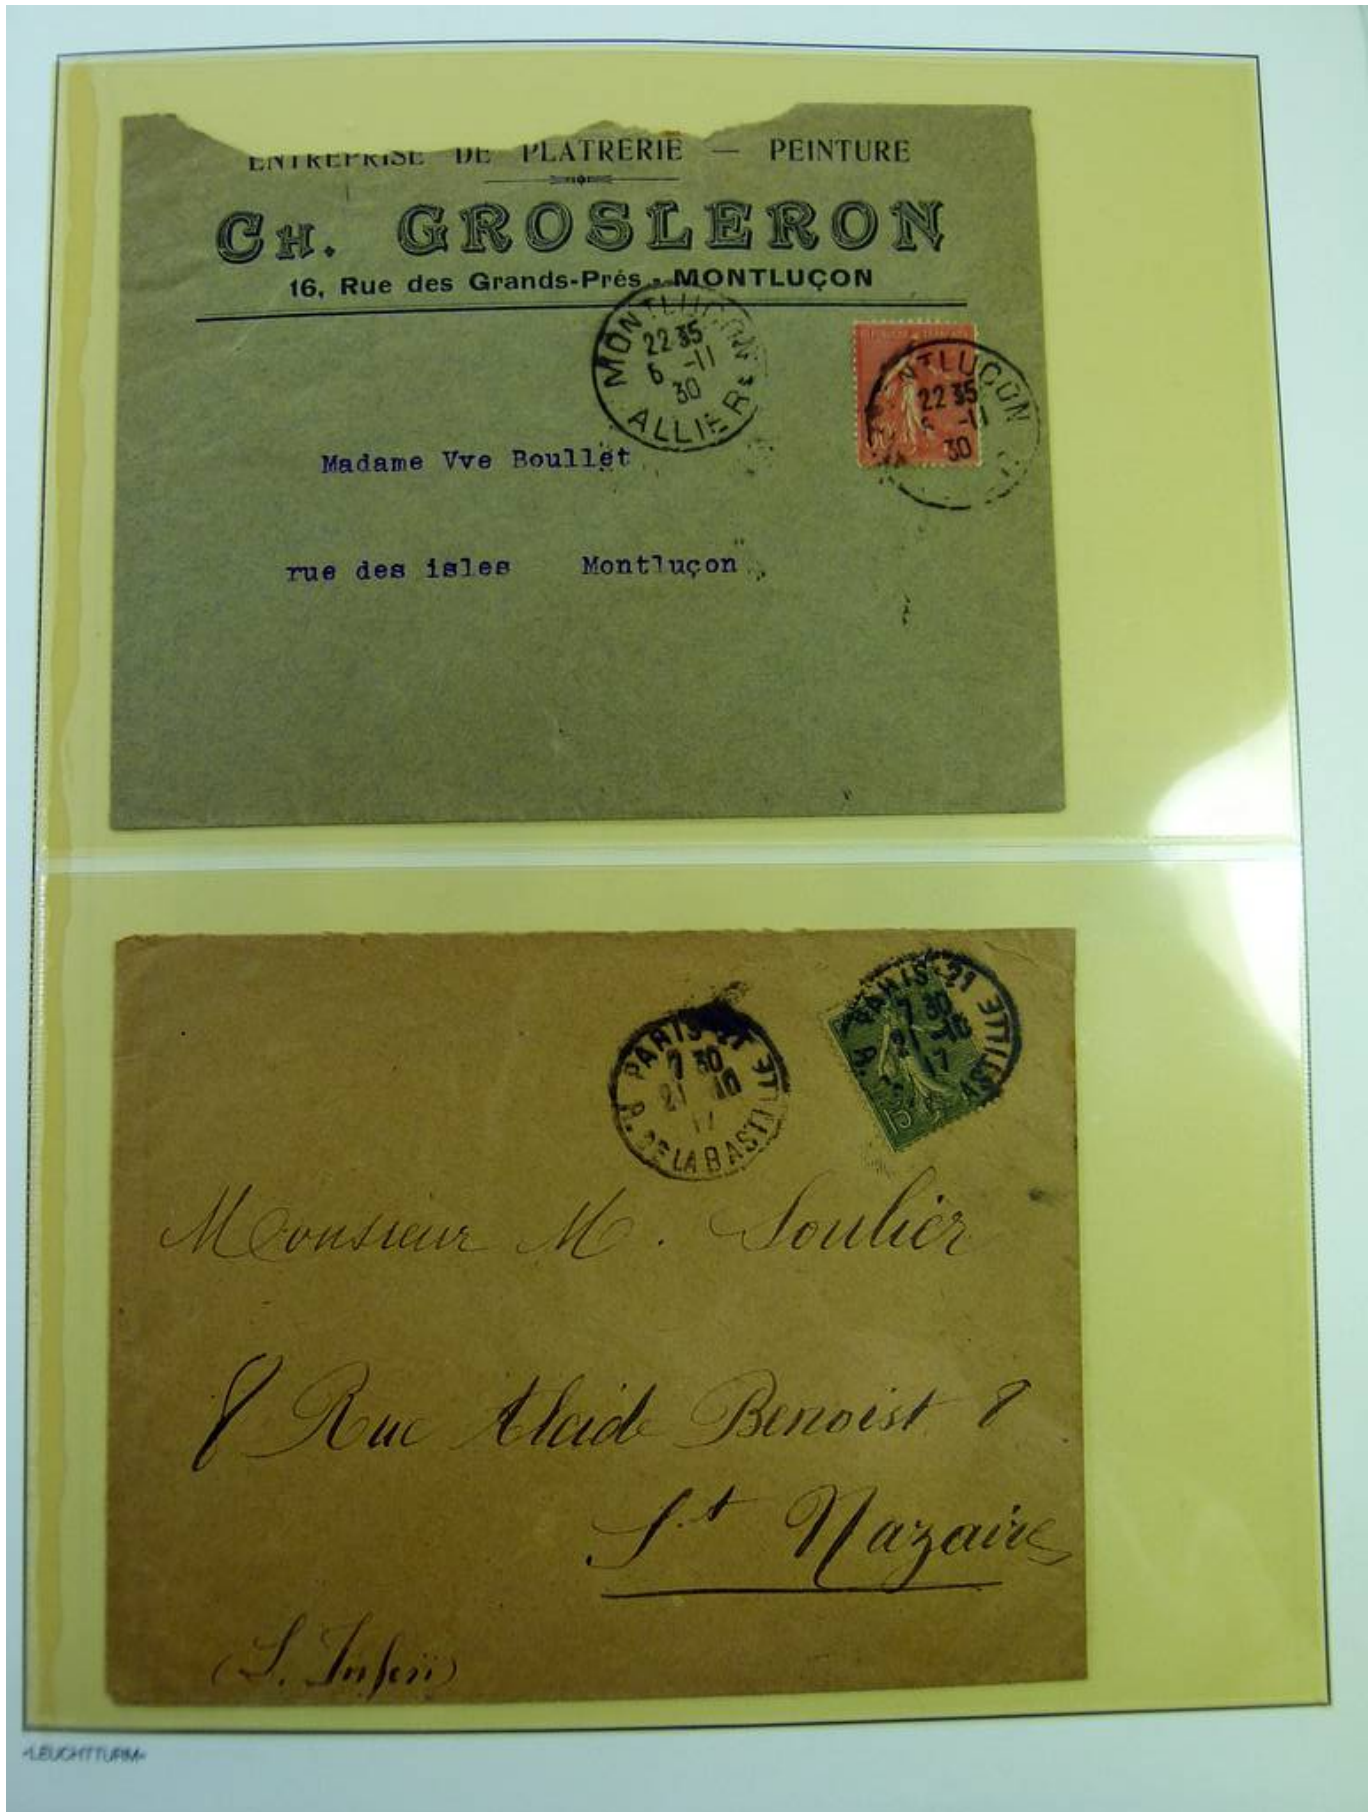 ENTREPRISE DE PLATRERIE — PEINTURE
CH. GROSLERON
16, Rue des Grands-Prés - MONTLUÇON
MONTLUÇON
22 35
6 -11
30
ALLIER
MONTLUÇON
22 35
6 -11
30
Madame Vve Boullet
rue des isles Montluçon
PARIS 21
7 30
21 10
17
R. DE LA BASTILLE
PARIS-21
7 30
21 -10
17
R. BASTILLE
15
Monsieur M. Soulier
8 Rue Alcide Benoist 8
St Nazaire
(L. Inferi)
»LEUCHTTURM«